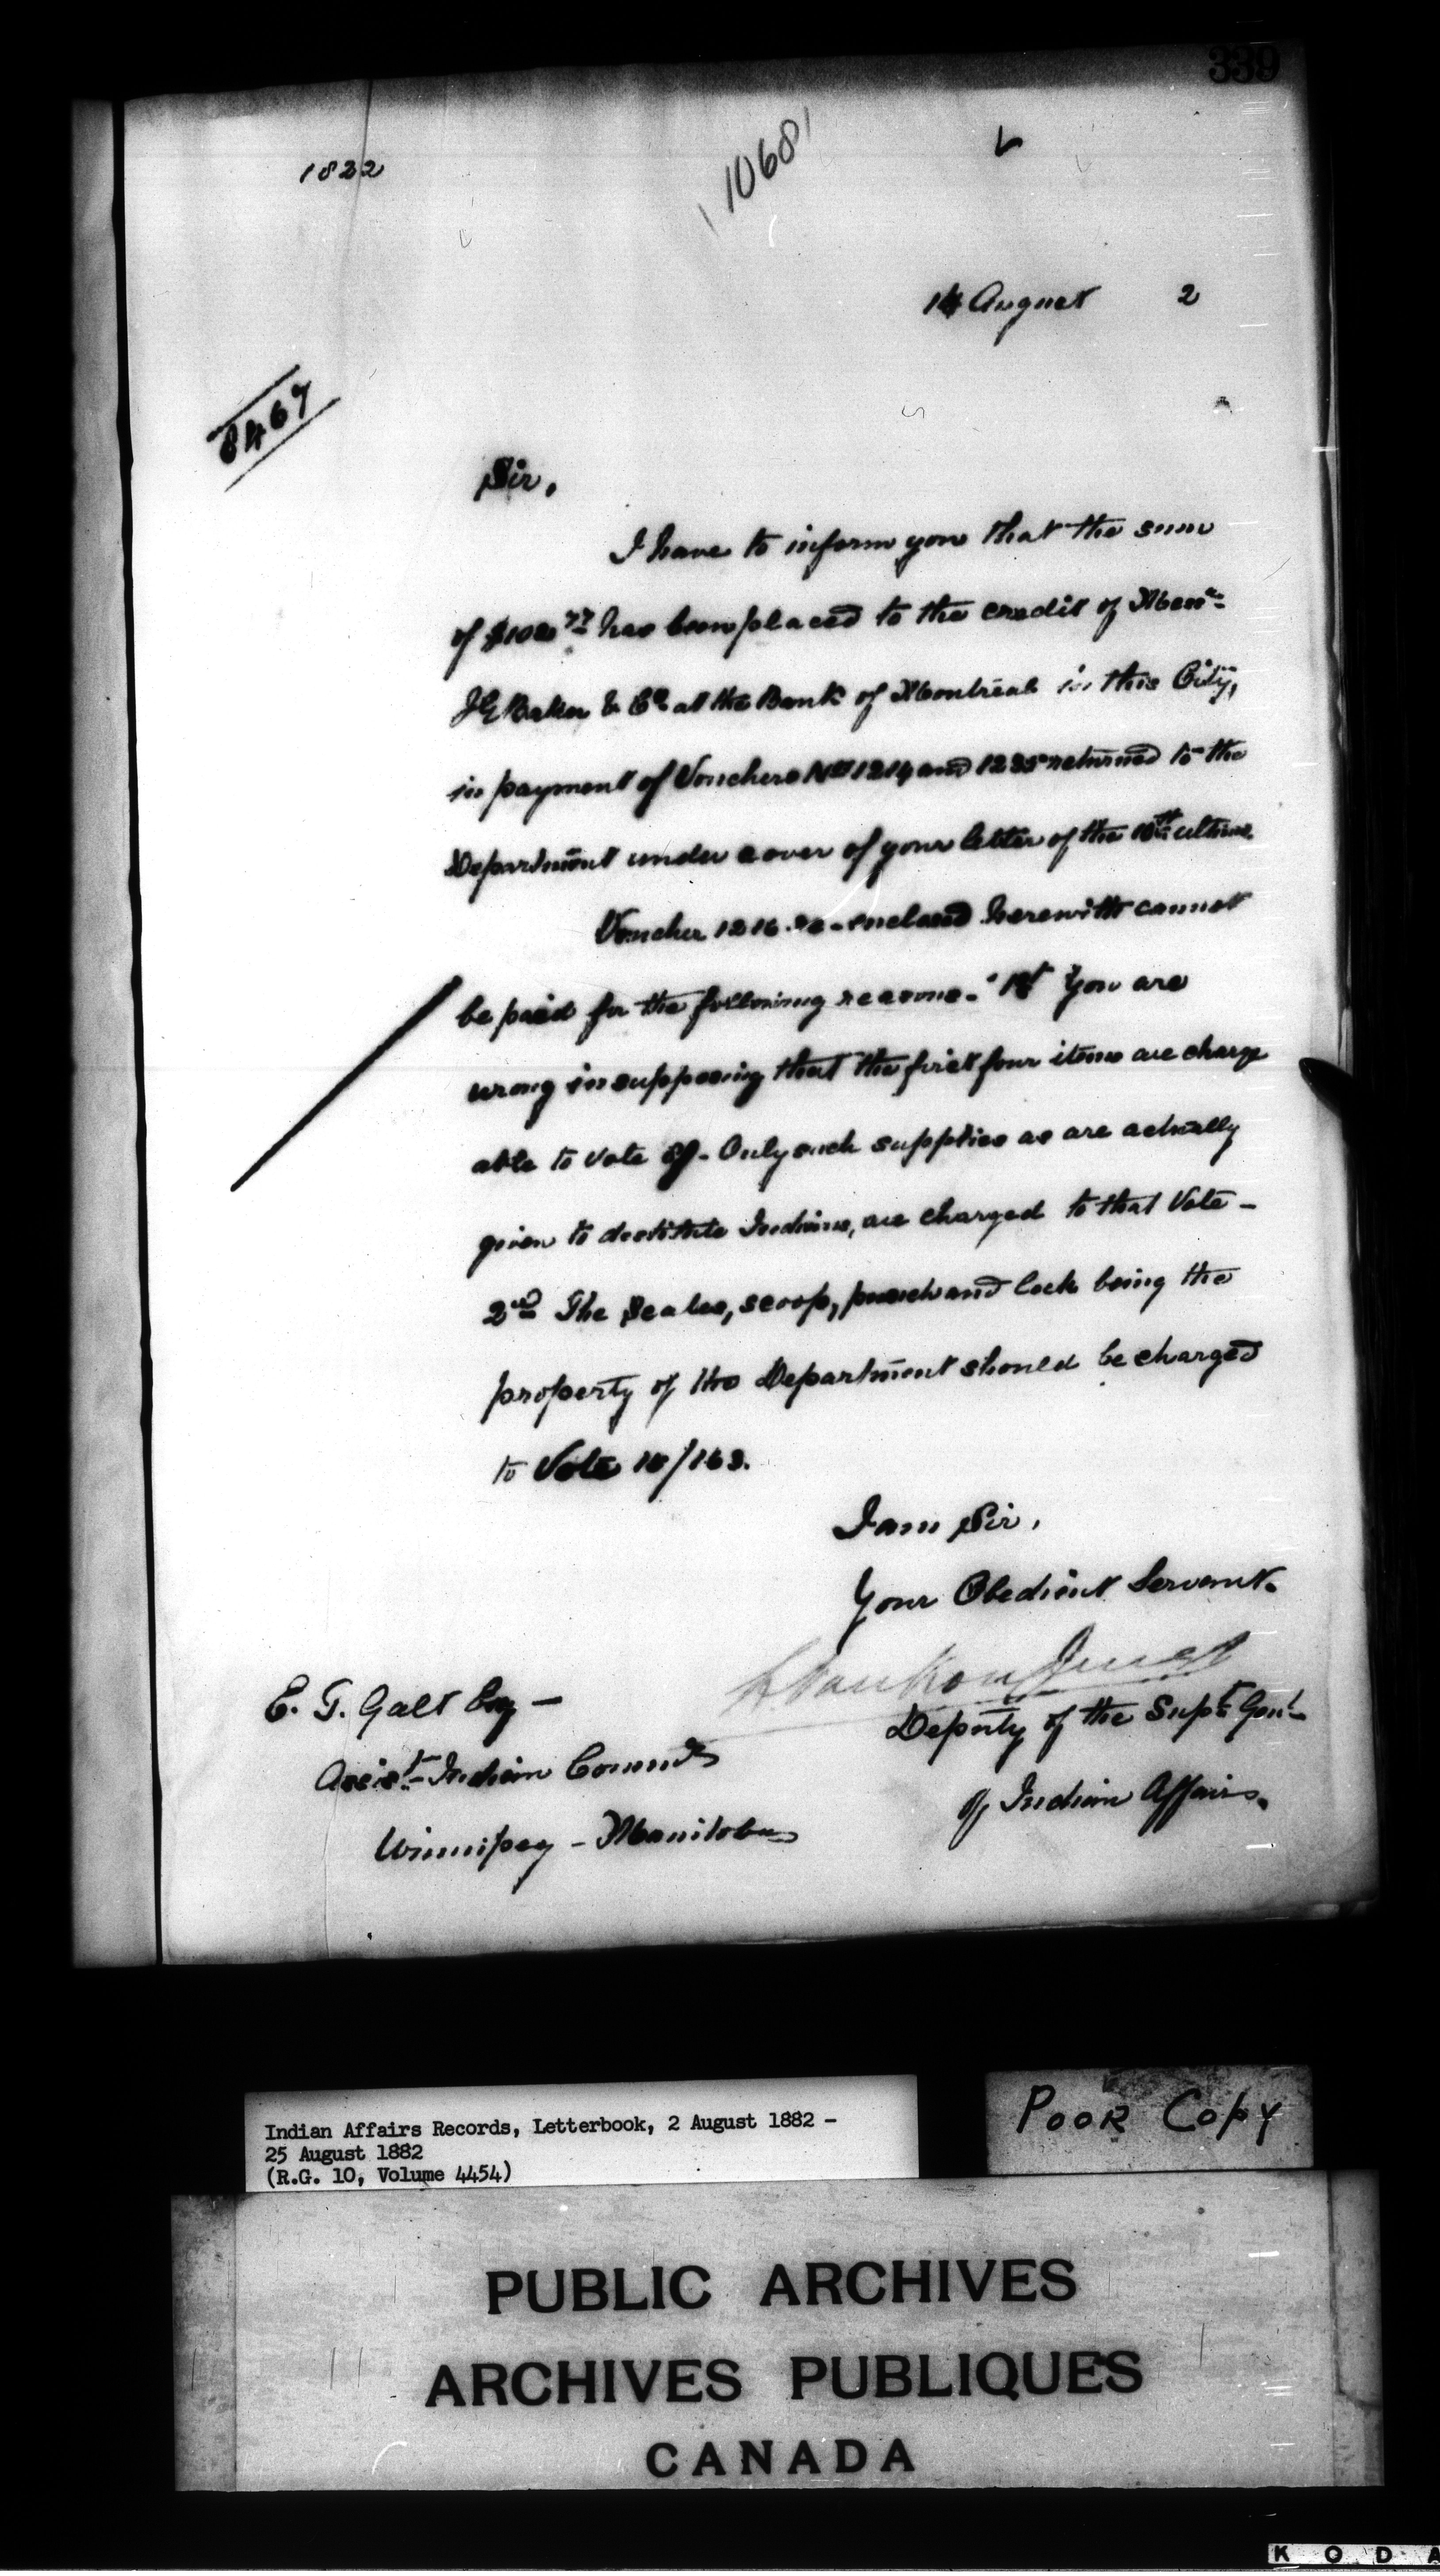 339
1068
1822
14 August 2
8467
Sir,
I have to inform you that the sum
of has been placed to the credit of Mess.rs
J G Baker & Co at the Bank of Montreal in this City,
in payment of Vouchers Nos 1214 and 1235 returned to the
Department under cover of your letter of the 10th ultimo.
Voucher 1216 re-enclosed herewith cannot
be paid for the following reasons. 1st You are
wrong in supposing that the first four items are charge
able to Vote Only such supplies as are actually
given to destitute Indians, are charged to that Vote -
2nd The Scales, scoop, punch and lock being the
property of the Department should be charged
to Vote 18/163.
I am Sir,
Your Obedient Servant.
L Vankoughnet
E. T. Galt Esq -
Deputy of the Supt Genl
Assist Indian Commr
of Indian Affairs.
Winnipeg - Manitoba
Indian Affairs Records, Letterbook, 2 August 1882 -
25 August 1882
(R.G. 10, Volume 4454)
POOR COPY
PUBLIC ARCHIVES
ARCHIVES PUBLIQUES
CANADA
KODA